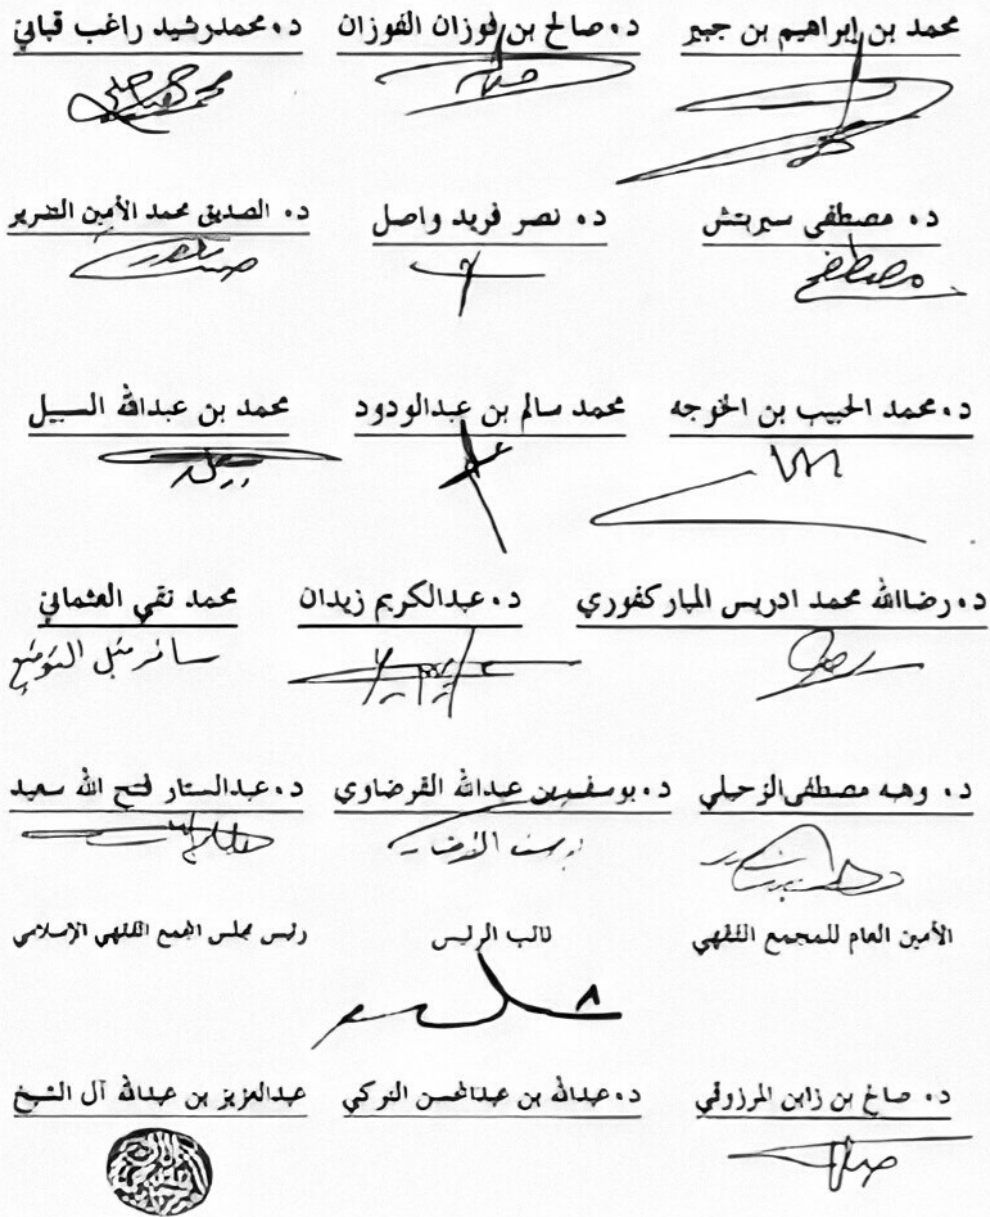 محمد بن إبراهيم بن جبير د. صالح بن فوزان الفوزان د. محمد رشيد راغب قباني
د. مصطفى سيريتش د. نصر فريد واصل د. الصديق محمد الأمين الضرير
مصطفى
د. محمد الحبيب بن الخوجه محمد سالم بن عبدالودود محمد بن عبدالله السبيل
د. رضاالله محمد ادريس المباركفوري د. عبدالكريم زيدان محمد تقي العثماني
سافر قبل التوقيع
د. وهبه مصطفى الزحيلي د. يوسف بن عبدالله القرضاوي د. عبدالستار فتح الله سعيد
الأمين العام للمجمع الفقهي نائب الرئيس رئيس مجلس المجمع الفقهي الإسلامي
د. صالح بن زابن المرزوقي د. عبدالله بن عبدالمحسن التركي عبدالعزيز بن عبدالله آل الشيخ